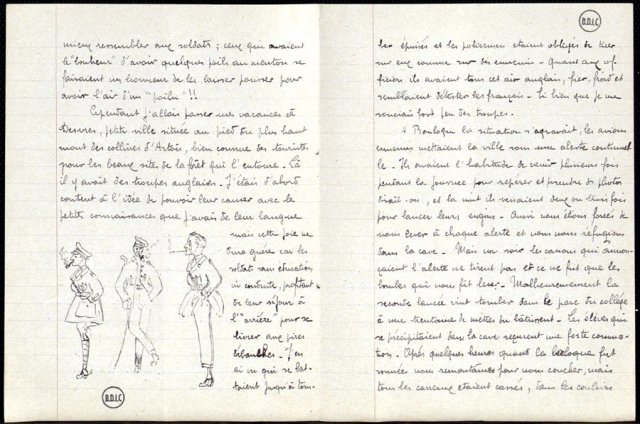 mieux ressembler aux soldats ; ceux qui avaient
le "bonheur" d'avoir quelques poils au menton se
faisaient un honneur de les laisser pousser pour
avoir l'air d'un "poilu" !!
Cependant j'allais passer mes vacances à
Desvres, petite ville située au pied du plus haut
mont des collines d'Artois, bien connue des touristes
pour les beaux sites de la forêt qui l'entoure. Là
il y avait des troupes anglaises. J'étais d'abord
content à l'idée de pouvoir leur causer avec le
petite connaissance que j'avais de leur langue
mais cette joie ne
dura guère car les
soldats sans éducation,
ni conduite, profitant
de leur séjour à
l'"arrière" pour se
livrer aux pires
débauches. J'en
ai vu qui se bat-
taient jusqu'à tom-
B.D.I.C
B.D.I.C
ber épuisés et les policemen étaient obligés de tirer
sur eux comme sur des ennemis. Quant aux of-
ficiers ils avaient tous cet air anglais, fier, froid et
semblaient détester les français. Si bien que je me
souciais fort peu des troupes.
À Boulogne la situation s'aggravait, les avions
ennemis mettaient la ville sous une alerte continuel-
le. Ils avaient l'habitude de venir plusieurs fois
pendant la journée pour repérer et prendre des photos
disait-on, et la nuit ils venaient deux ou trois fois
pour lancer leurs engins. Aussi nous étions forcés de
nous lever à chaque alerte et nous nous réfugions
dans la cave. Mais un soir les canons qui annon-
çaient l'alerte ne tirent pas et ce ne fut que les
bombes qui nous fit lever. Malheureusement la
seconde lancée vint tomber dans le parc du collège
à une trentaine de mètres du bâtiment. Les élèves qui
se précipitaient dans la cave reçurent une forte commo-
tion. Après quelques heures quand la berloque fut
sonnée nous remontâmes pour nous coucher, mais
tous les carreaux étaient cassés, dans les couloirs